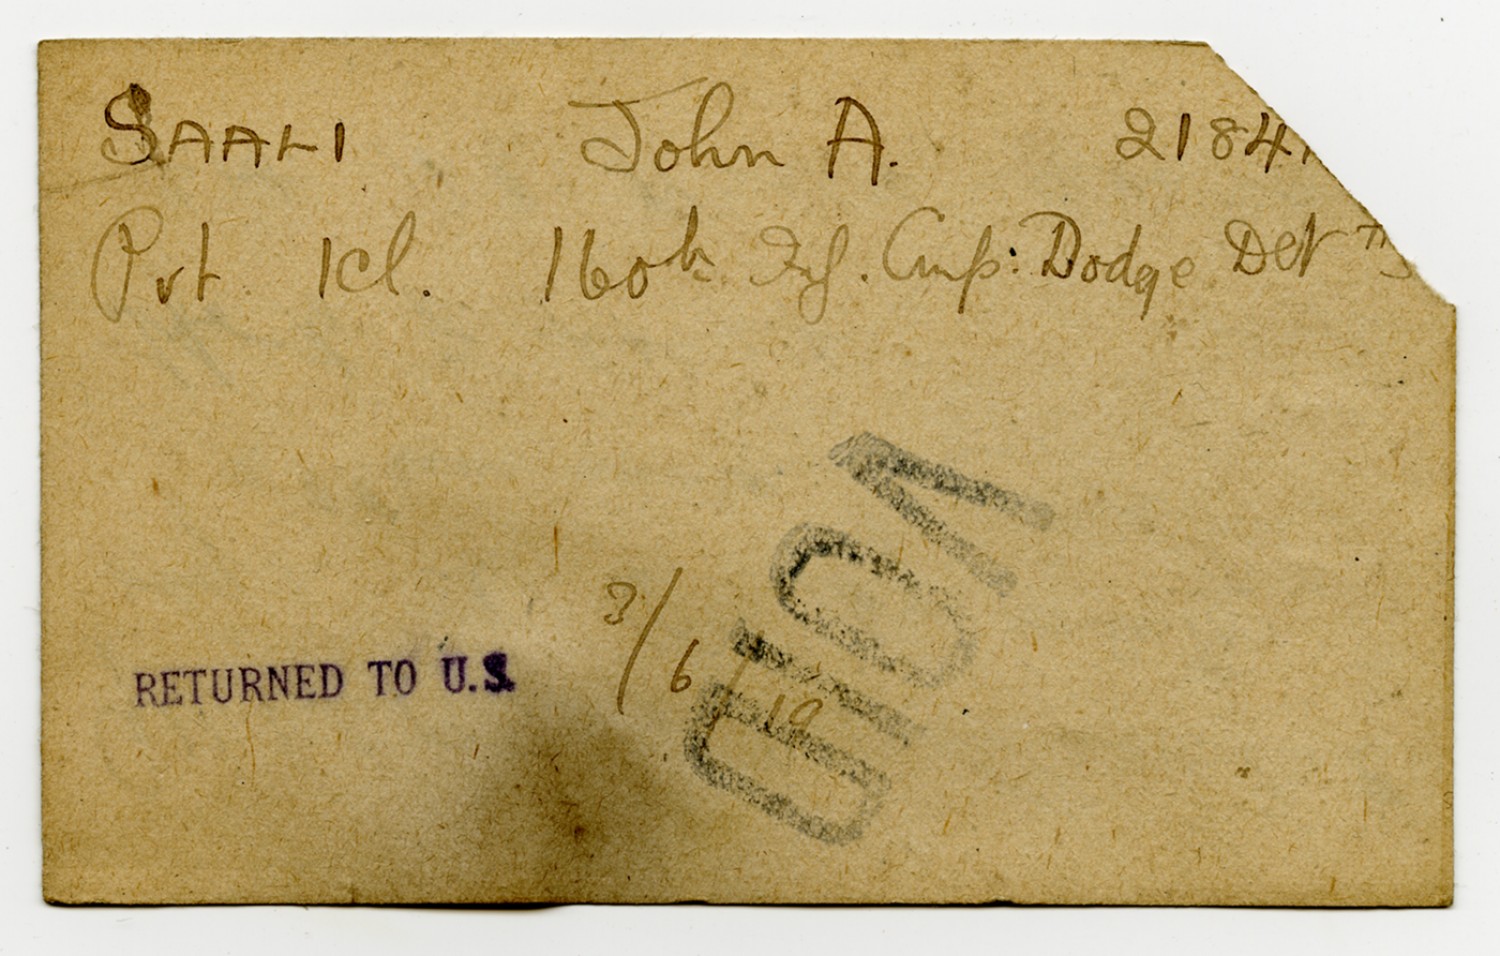 SAALI John A. 2184
Pvt 1cl. 160th Inf. Cmp: Dodge Det #3
VOID
RETURNED TO U.S. 3/6/19